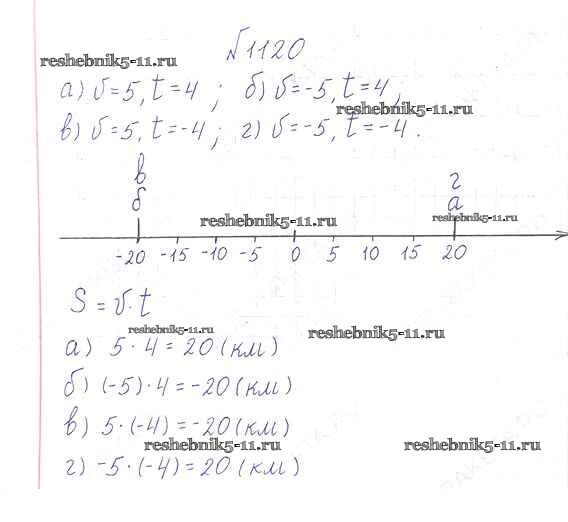 №1120
reshebnik5-11.ru
а) v=5, t=4 ; б) v=-5, t=4,
reshebnik5-11.ru
в) v=5, t=-4 ; г) v=-5, t=-4.
в г
б а
reshebnik5-11.ru reshebnik5-11.ru
-20 -15 -10 -5 0 5 10 15 20
S = v·t
reshebnik5-11.ru reshebnik5-11.ru
а) 5·4=20(км)
б) (-5)·4=-20(км)
в) 5·(-4)=-20(км)
reshebnik5-11.ru reshebnik5-11.ru
г) -5·(-4)=20(км)